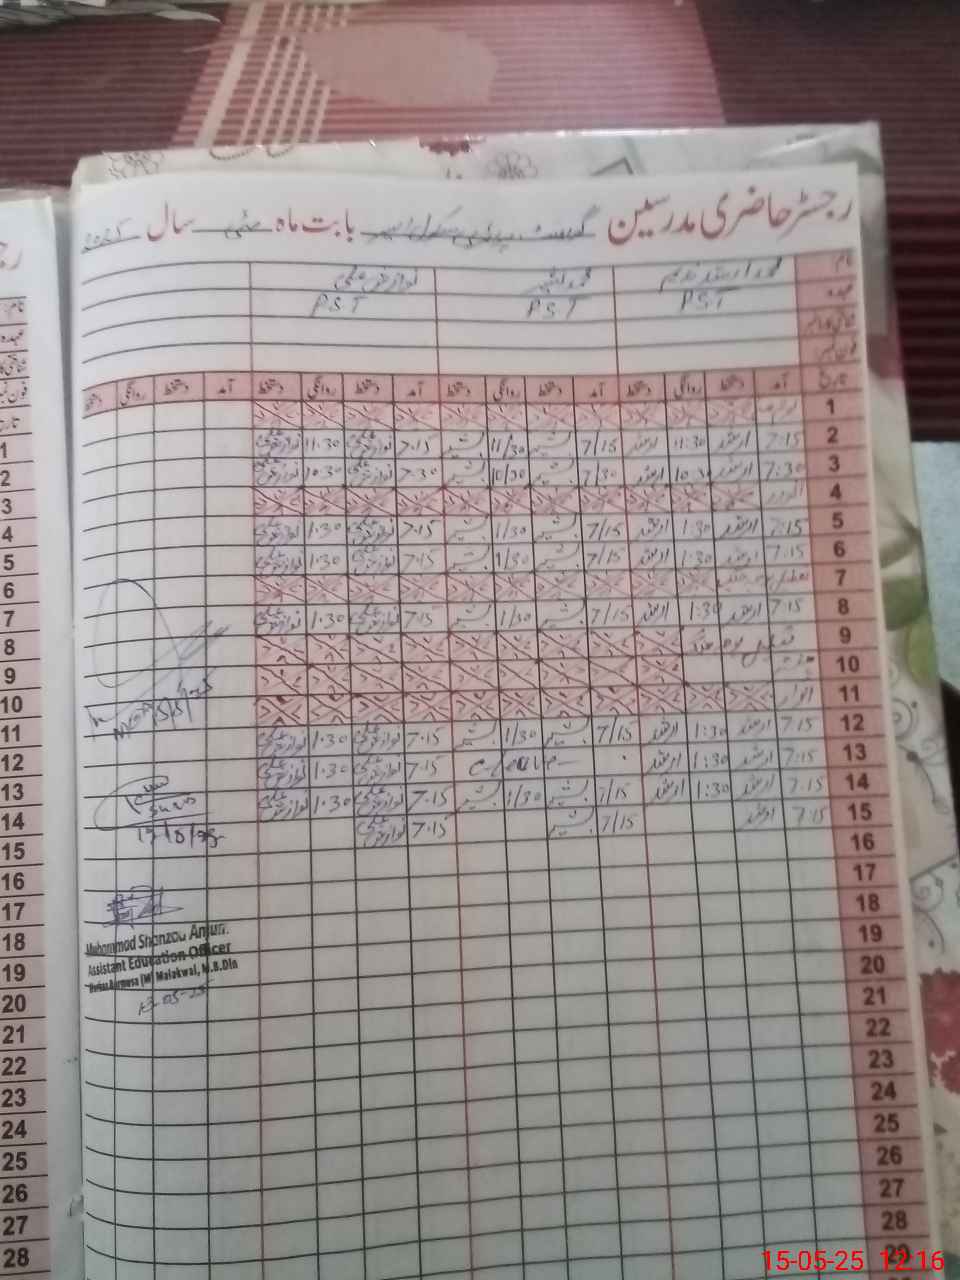 رجسٹر حاضری مدرسین گورنمنٹ پرائمری سکول بابت ماہ مئی سال 2025
نام محمد ارشد ندیم محمد بشیر نواز علی
عہدہ P.S.T P.S.T P.S.T
شناختی کارڈ نمبر
فون نمبر
تاریخ آمد دستخط روانگی دستخط آمد دستخط روانگی دستخط آمد دستخط روانگی دستخط آمد دستخط روانگی دستخط
1
2 7:15 ارشد 11:30 ارشد 7/15 بشیر 11/30 بشیر 7:15 نواز علی 11:30 نواز علی
3 7:30 ارشد 10:30 ارشد 7/30 بشیر 10/30 بشیر 7:30 نواز علی 10:30 نواز علی
4 اتوار
5 7:15 ارشد 1:30 ارشد 7/15 بشیر 1/30 بشیر 7:15 نواز علی 1:30 نواز علی
6 7:15 ارشد 1:30 ارشد 7/15 بشیر 1/30 بشیر 7:15 نواز علی 1:30 نواز علی
7 تعطیل بوجہ جنگ
8 7:15 ارشد 1:30 ارشد 7/15 بشیر 1/30 بشیر 7:15 نواز علی 1:30 نواز علی
9 تعطیل بوجہ جنگ
10
11 اتوار
12 7:15 ارشد 1:30 ارشد 7/15 بشیر 1/30 بشیر 7:15 نواز علی 1:30 نواز علی
13 7:15 ارشد 1:30 ارشد c-leave 7:15 نواز علی 1:30 نواز علی
14 7:15 ارشد 1:30 ارشد 7/15 بشیر 1/30 بشیر 7:15 نواز علی 1:30 نواز علی
15 7:15 ارشد 7/15 بشیر 7:15 نواز علی
16
17
18
19
20
21
22
23
24
25
26
27
28
29
15/5/25
Muhammad Shanzad Anjum
Assistant Education Officer
(M) Malakwal, M.B.Din
13-05-25
رج
نام
عہدہ
شناختی کا
فون نم
تاریخ
1
2
3
4
5
6
7
8
9
10
11
12
13
14
15
16
17
18
19
20
21
22
23
24
25
26
27
28
15-05-25 12:16